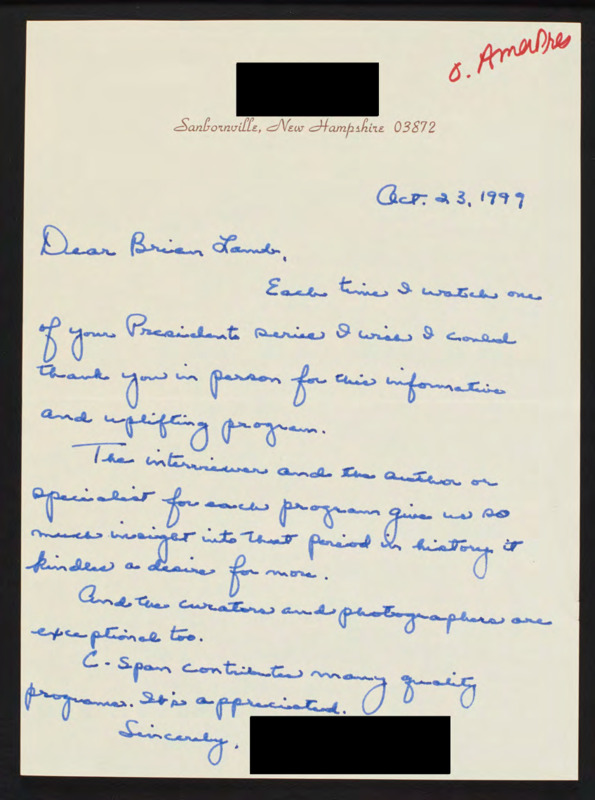 o. AmerPres
Sanbornville, New Hampshire 03872
Oct. 23, 1999
Dear Brian Lamb,
Each time I watch one
of your Presidents series I wish I could
thank you in person for this informative
and uplifting program.
The interviewer and the author or
specialist for each program give us so
much insight into that period in history it
kindles a desire for more.
And the curators and photographers are
exceptional too.
C-Span contributes many quality
programs. It is appreciated.
Sincerely,